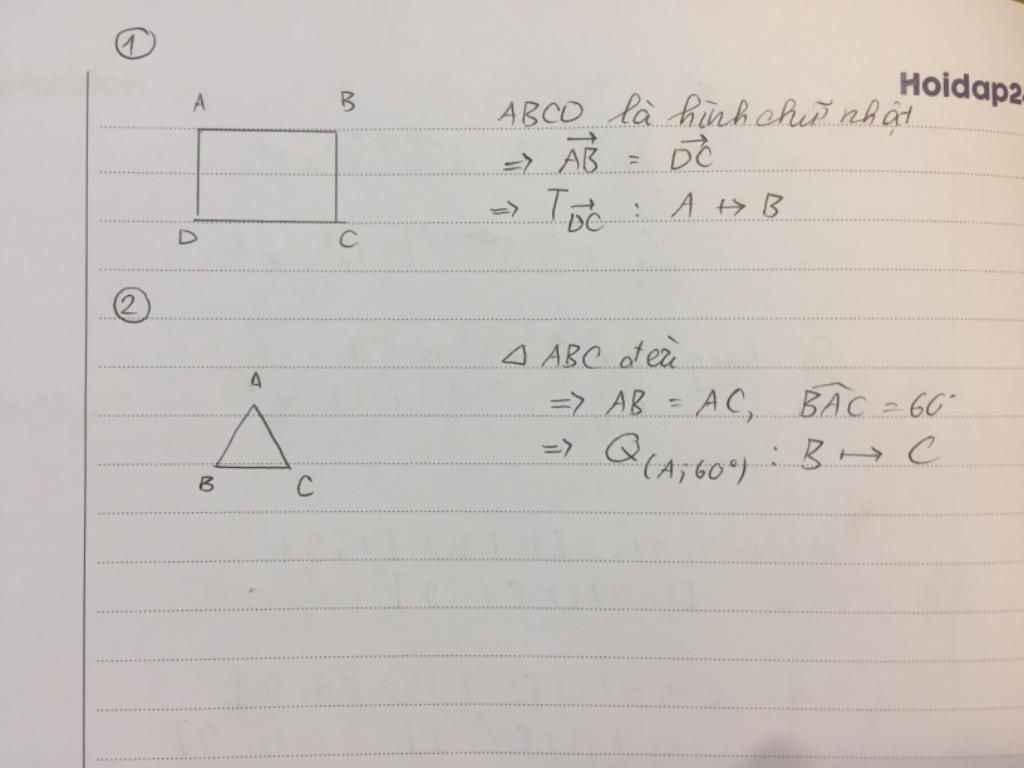 ①
Hoidap2
A B
D C
ABCD là hình chữ nhật
=> \overrightarrow{AB} = \overrightarrow{DC}
=> T_{\overrightarrow{DC}} : A ↦ B
②
A
B C
Δ ABC đều
=> AB = AC, \widehat{BAC} = 60°
=> Q_{(A; 60°)} : B ↦ C